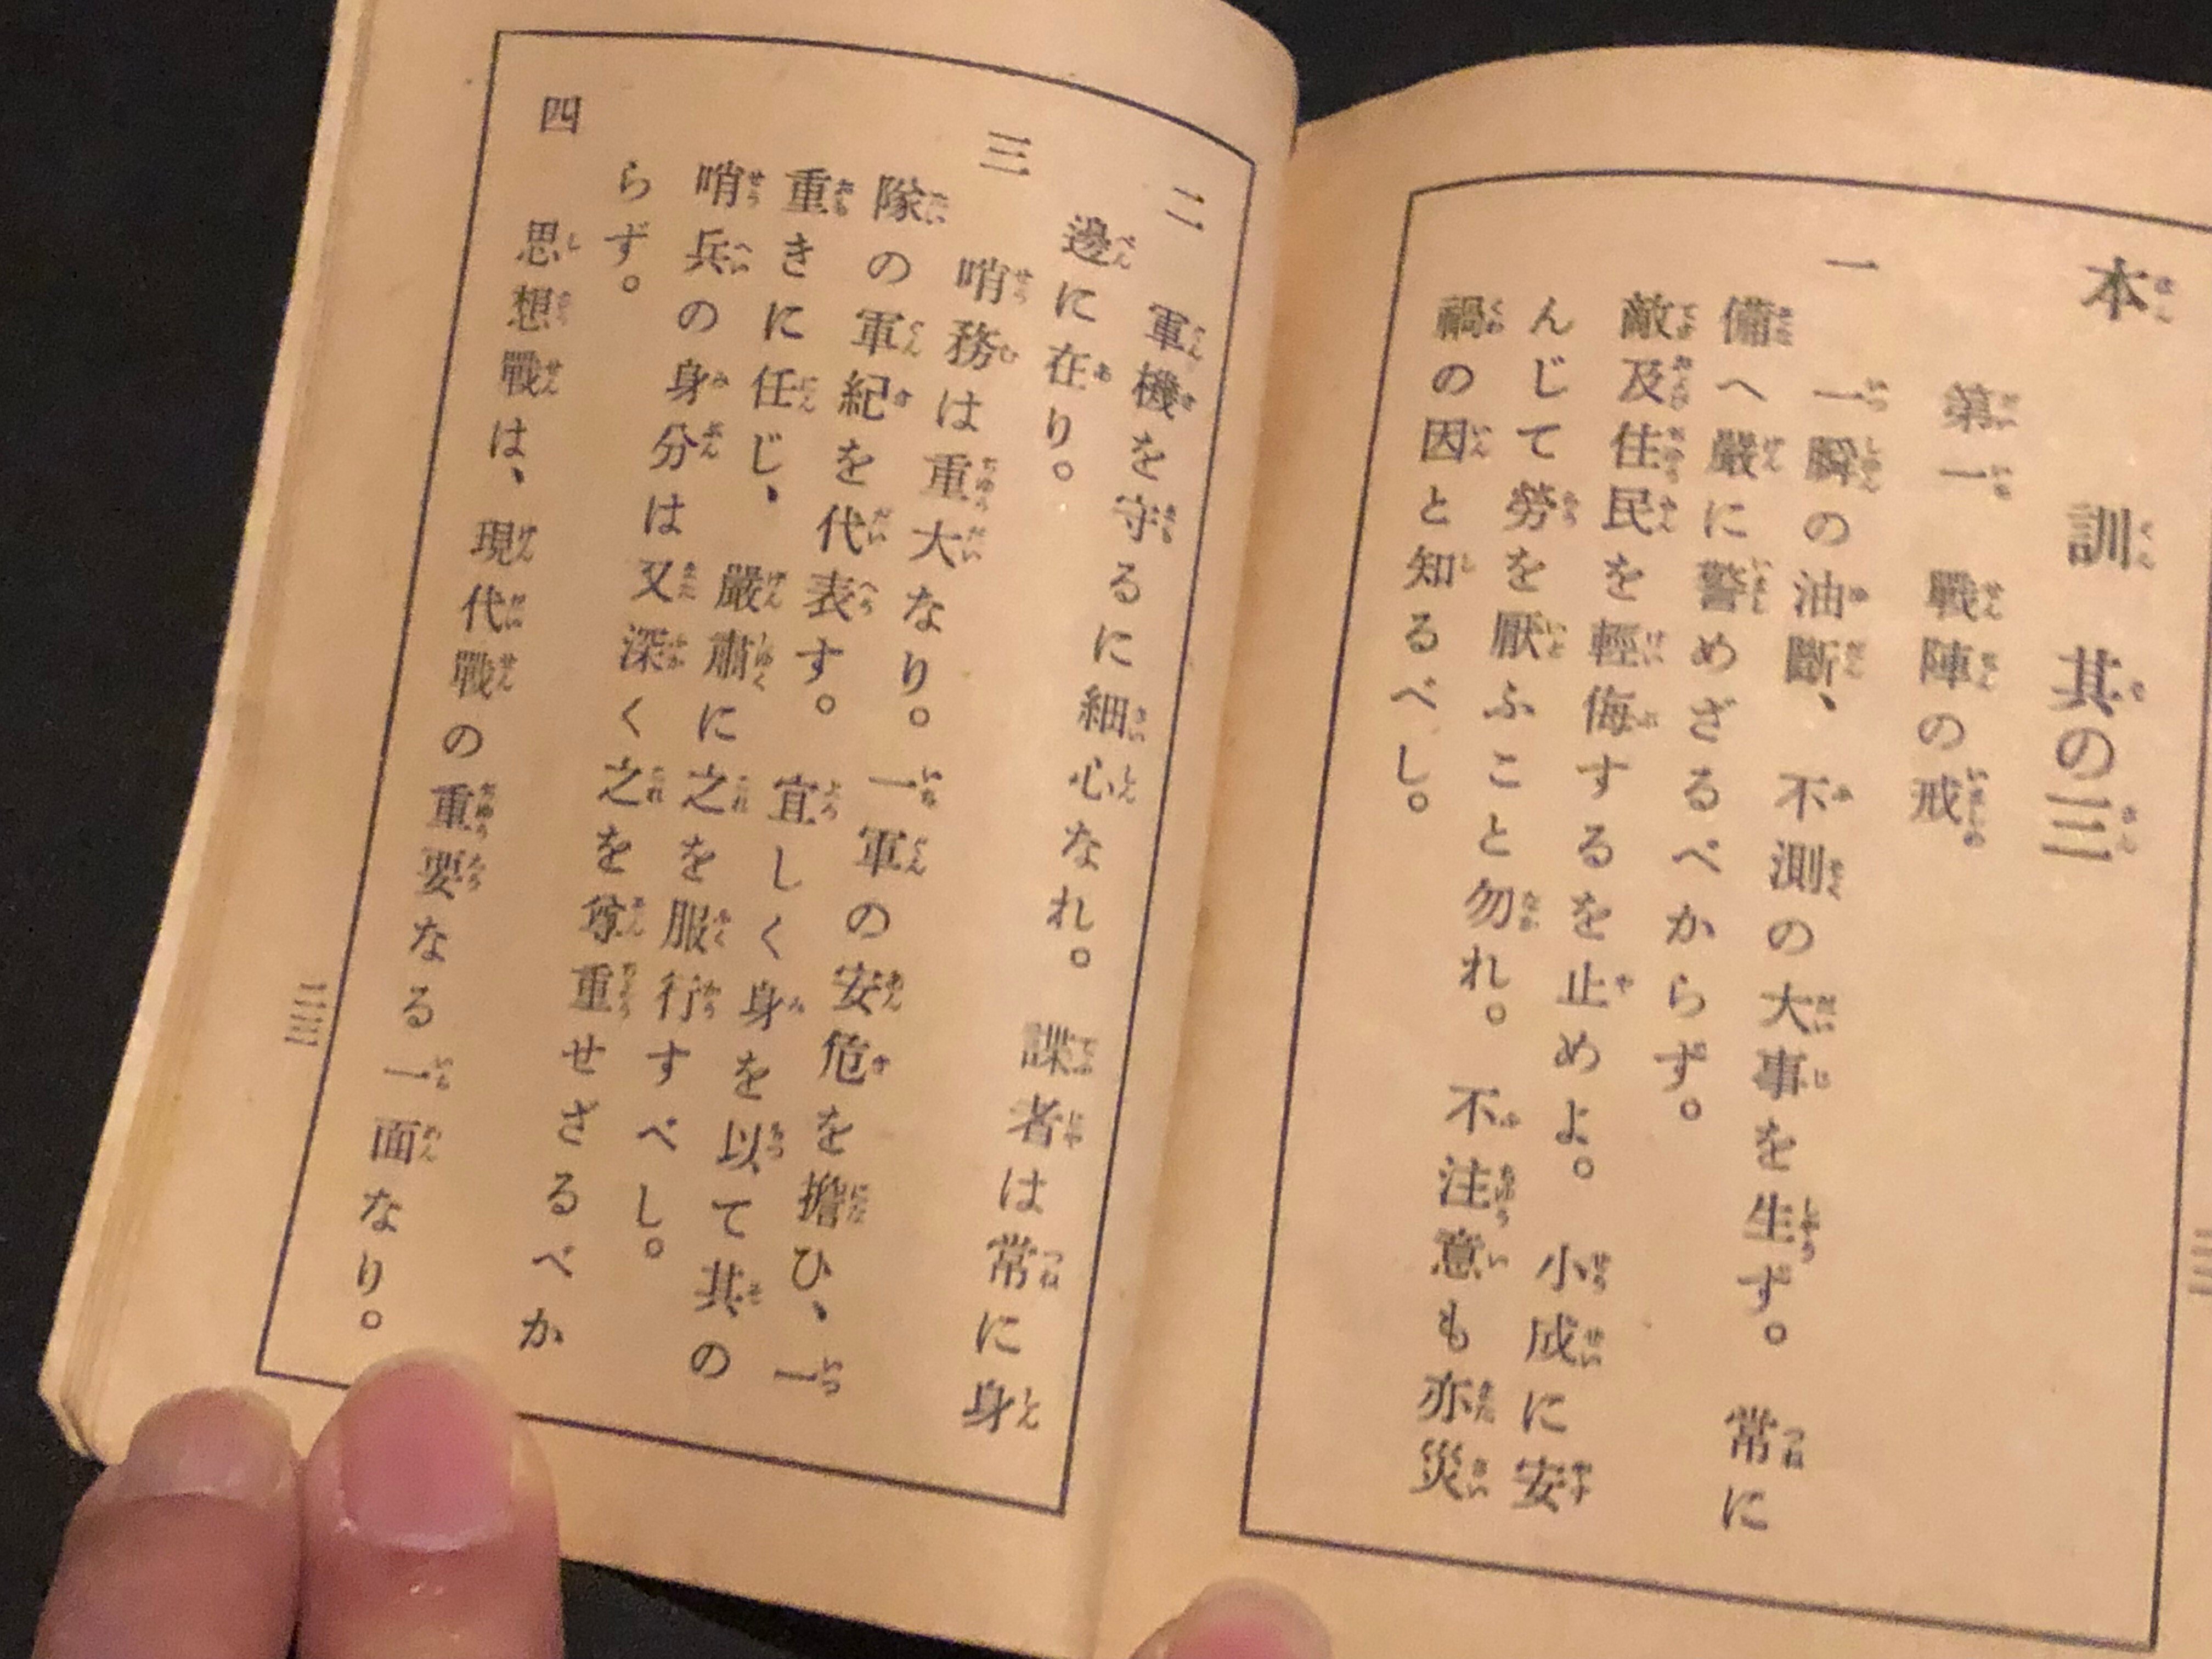 本訓 其の三
第一 戰陣の戒
一 一瞬の油斷、不測の大事を生ず。常に
備へ嚴に警めざるべからず。
敵及住民を輕侮するを止めよ。小成に安
んじて勞を厭ふこと勿れ。不注意も亦災
禍の因と知るべし。
二 軍機を守るに細心なれ。諜者は常に身
邊に在り。
三 哨務は重大なり。一軍の安危を擔ひ、一
隊の軍紀を代表す。宜しく身を以て其の
重きに任じ、嚴肅に之を服行すべし。
哨兵の身分は又深く之を尊重せざるべか
らず。
四 思想戰は、現代戰の重要なる一面なり。